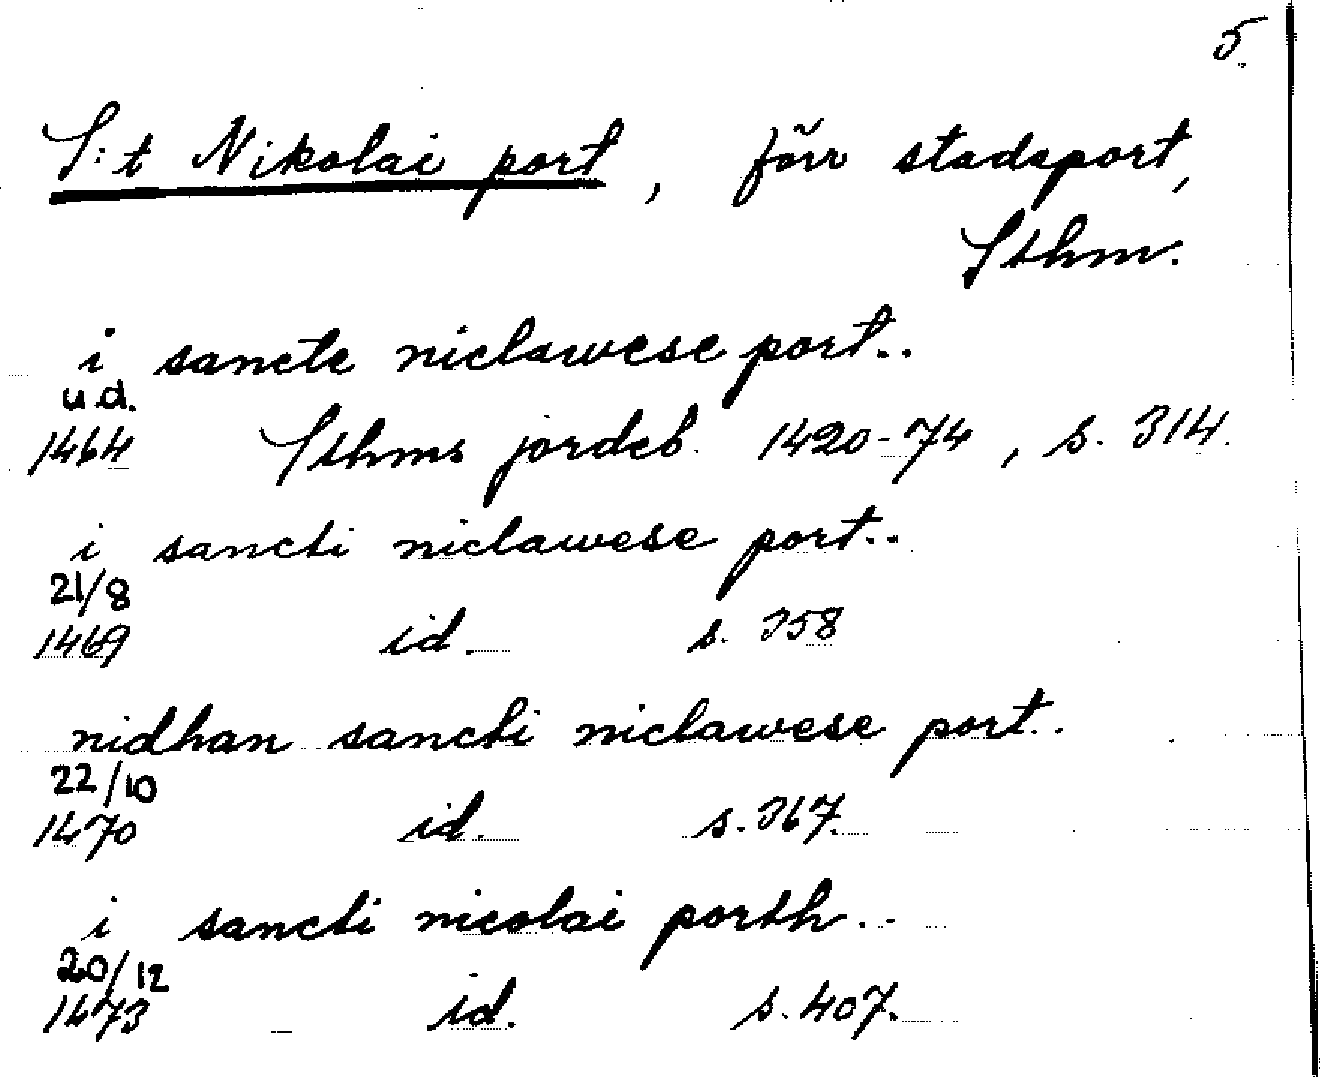 5.
S:t Nikolai port, förr stadsport,
Sthm.
i sancte niclawese port..
u.d.
1464 Sthms jordeb. 1420-74, s. 314.
i sancti niclawese port..
21/8
1469 id. s. 358
nidhan sancti niclawese port..
22/10
1470 id. s. 367.
i sancti nicolai porth..
20/12
1473 id. s. 407.